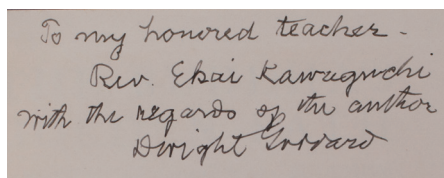 To my honored teacher -
Rev. Ekai Kawaguchi
with the regards of the author
Dwight Goddard